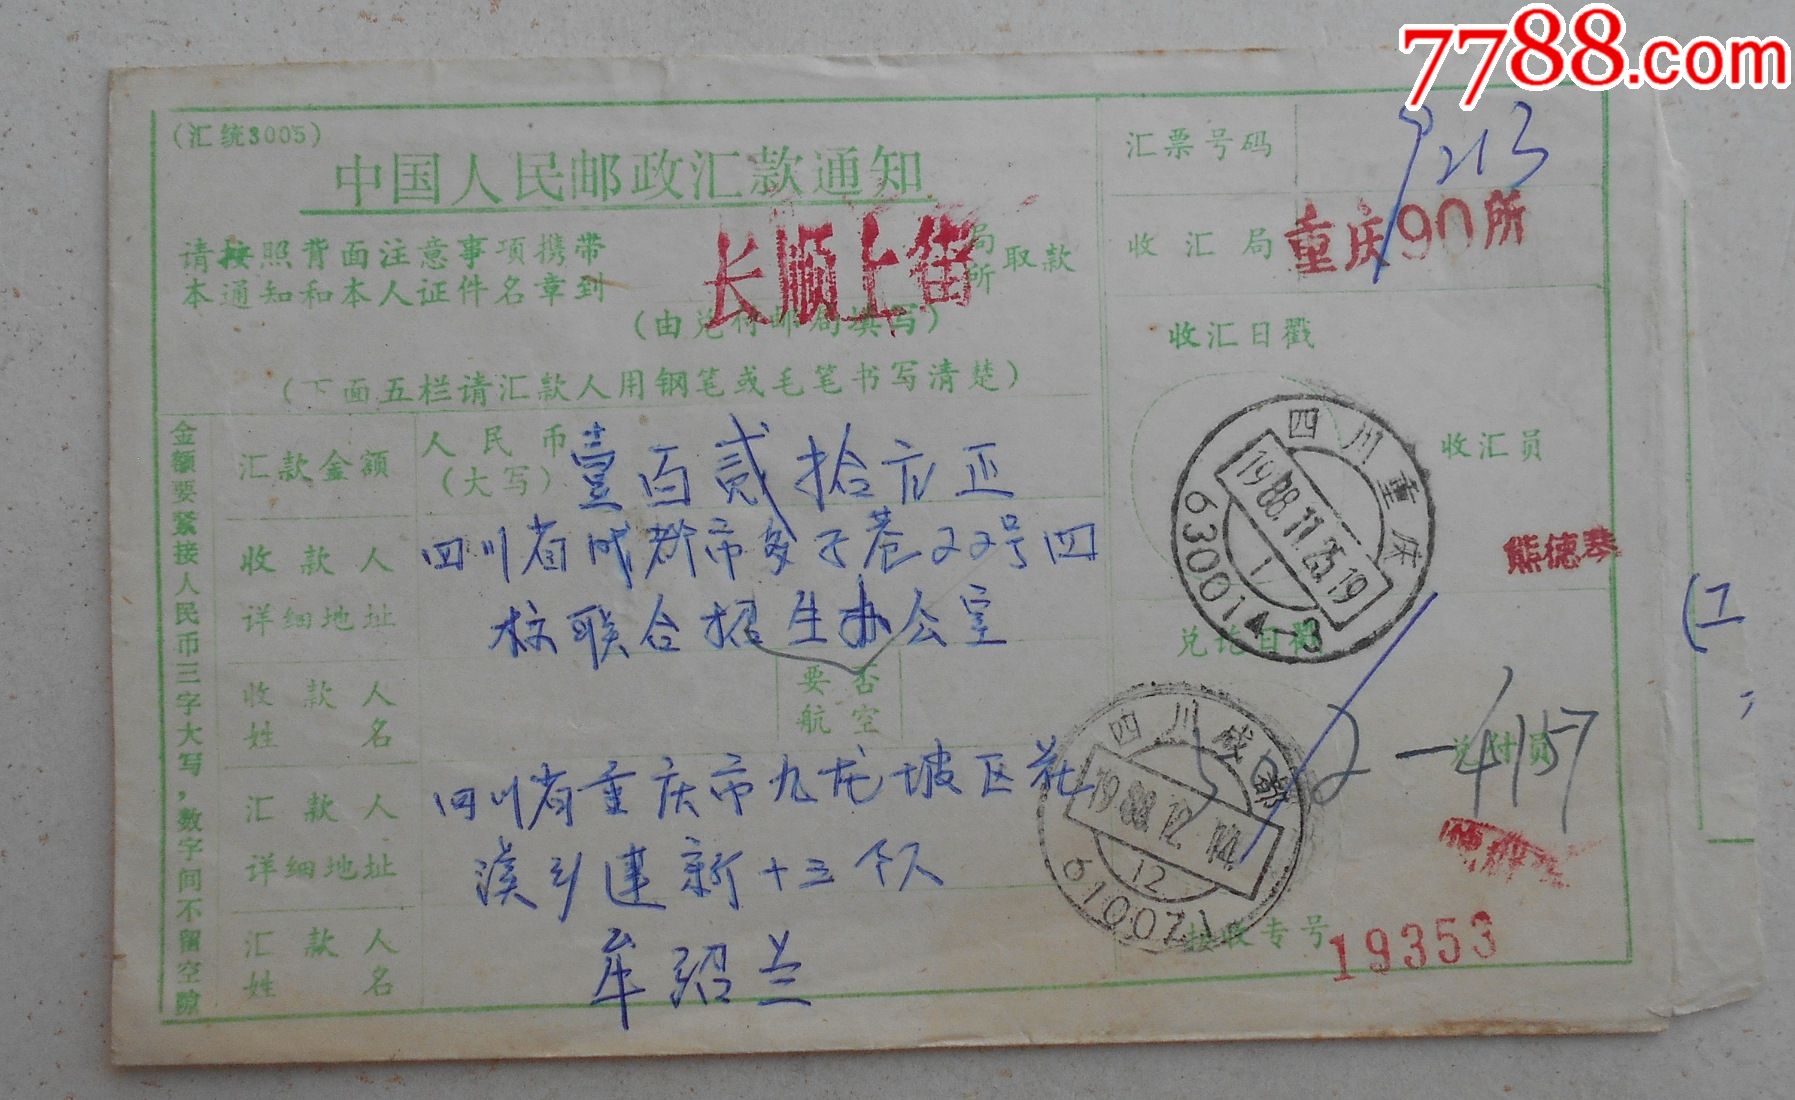 7788.com
(汇统3005)
中国人民邮政汇款通知
请按照背面注意事项携带
本通知和本人证件名章到
长顺上街
局
所
取款
(由兑付邮局填写)
(下面五栏请汇款人用钢笔或毛笔书写清楚)
金额要紧接人民币三字大写,数字间不留空隙
汇款金额
人民币
(大写)
壹百贰拾元正
收款人
详细地址
四川省成都市多子巷22号四
校联合招生办公室
收款人
姓名
要否
航空
汇款人
详细地址
四川省重庆市九龙坡区花
溪乡建新十三个队
汇款人
姓名
牟绍兰
汇票号码
9213
收汇局
重庆90所
收汇日戳
四川重庆
1988.11.25.19
1
630014-3
收汇员
熊德琴
兑讫日戳
四川成都
1988.12.14
12
610071
2-4157
兑付员
接收专号
19353
(工